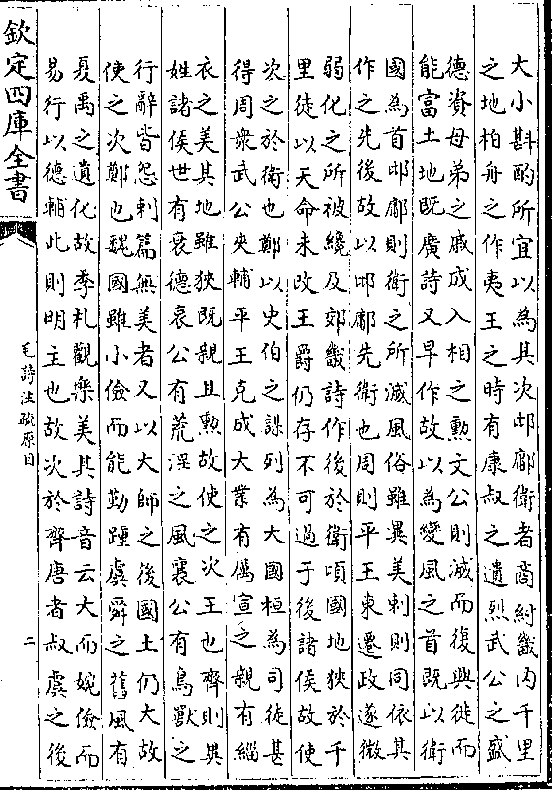 大小斟酌所宜以為其次邶鄘衛者商紂畿内千里
之地柏舟之作夷王之時有康叔之遺烈武公之盛
德資母弟之戚成入相之勲文公則滅而復興徙而
能富土地既廣詩又早作故以為變風之首既以衛
國為首邶鄘則衛之所滅風俗雖異美刺則同依其
作之先後故以邶鄘先衛也周則平王東遷政遂微
弱化之所被纔及郊畿詩作後於衛頃國地狹於千
里徒以天命未改王爵仍存不可過于後諸侯故使
次之於衛也鄭以史伯之謀列為大國桓為司徒甚
得周衆武公夾輔平王克成大業有厲宣之親有緇
衣之美其地雖狹既親且勲故使之次王也齊則異
姓諸侯世有衰德哀公有荒淫之風襄公有鳥獸之
行辭皆怨刺篇無美者又以大師之後國土仍大故
使之次鄭也魏國雖小儉而能勤踵虞舜之舊風有
夏禹之遺化故季札觀樂美其詩音云大而婉儉而
易行以德輔此則明主也故次於齊唐者叔虞之後
欽定四庫全書
毛詩注疏原目
二